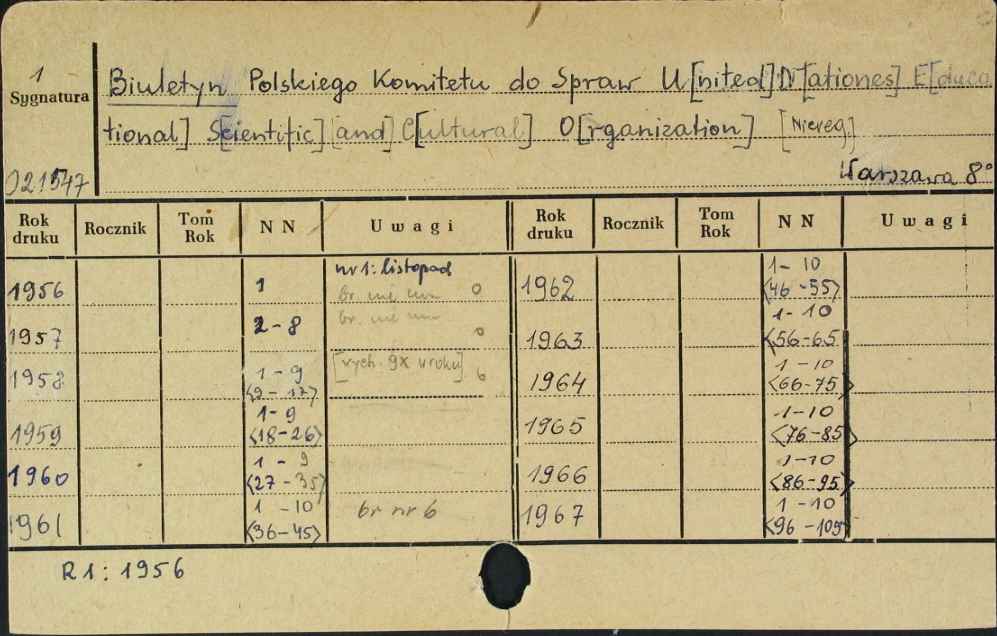 1
Sygnatura
021547
Biuletyn Polskiego Komitetu do Spraw U[nited] N[ationes] E[duca
tional] S[cientific] [and] C[ultural] O[rganization] [Niereg.]
Warszawa 8°
Rok druku Rocznik Tom Rok NN Uwagi Rok druku Rocznik Tom Rok NN Uwagi
1956 1 nr 1: listopad
1957 2-8
1958 1-9 <9-17> [wych. 9x w roku]
1959 1-9 <18-26>
1960 1-9 <27-35>
1961 1-10 <36-45> br nr 6
1962 1-10 <46-55>
1963 1-10 <56-65
1964 1-10 <66-75>
1965 1-10 <76-85>
1966 1-10 <86-95>
1967 1-10 <96-105>
R1: 1956